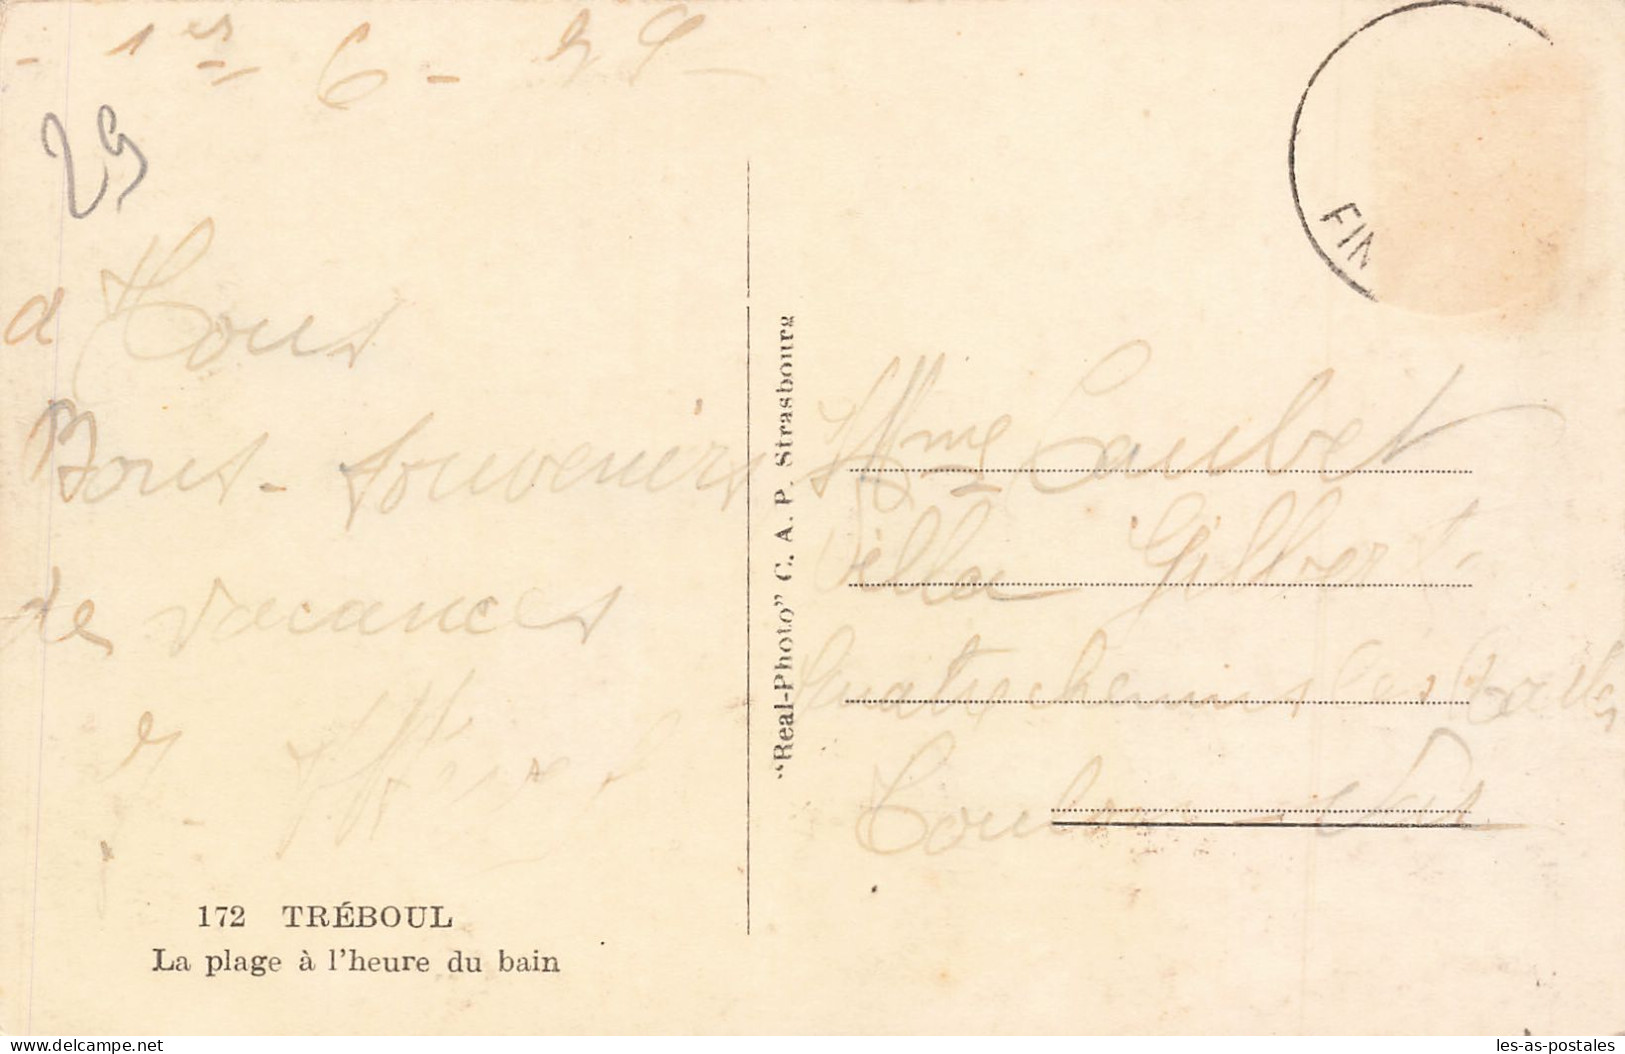 - 1er 6 - 
29
a Tous
Bons souvenirs
de vacances
172 TRÉBOUL
La plage à l'heure du bain
"Real-Photo" C. A. P. Strasbourg
FIN
Mme Laubet
Villa Gilbert
Quatre chemins des Routes
Toulon - Var
les-as-postales